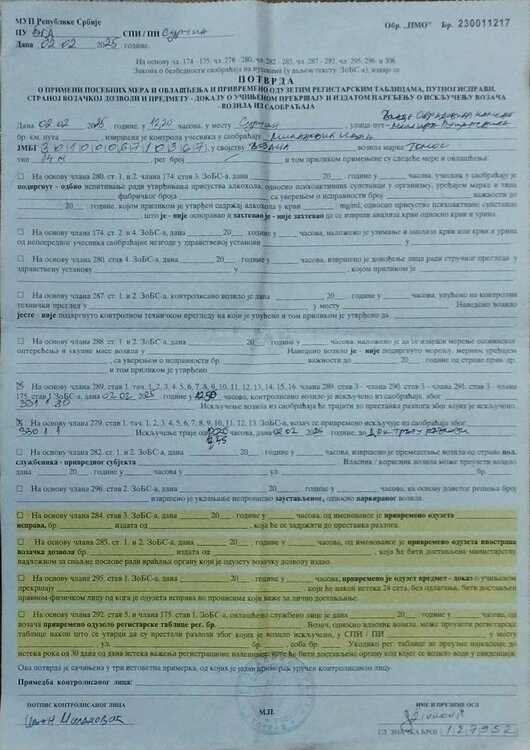 МУП Републике Србије
ПУ БГД СПИ / ПИ Сурчин
Дана 02.02 2025 године.
Обр. „ПМО” Бр. 230011217
На основу чл. 174 - 175. чл. 278 - 280. чл. 282 - 285. чл. 287 - 292. чл. 295. 296. и 306.
Закона о безбедности саобраћаја на путевима (у даљем тексту ЗоБС-а), издаје се
ПОТВРДА
О ПРИМЕНИ ПОСЕБНИХ МЕРА И ОВЛАШЋЕЊА И ПРИВРЕМЕНО ОДУЗЕТИМ РЕГИСТАРСКИМ ТАБЛИЦАМА, ПУТНОЈ ИСПРАВИ,
СТРАНОЈ ВОЗАЧКОЈ ДОЗВОЛИ И ПРЕДМЕТУ - ДОКАЗУ О УЧИЊЕНОМ ПРЕКРШАЈУ И ИЗДАТОМ НАРЕЂЕЊУ О ИСКЉУЧЕЊУ ВОЗАЧА
- ВОЗИЛА ИЗ САОБРАЋАЈА
Дана 02.02 2025 године, у 1220 часова, у месту Сурчин улица-пут
бр. км. пута извршена је контрола учесника у саобраћају
ЈМБГ у својству возача возила марке Томос
тип 14М рег. број и том приликом примењене су следеће мере и овлашћења:
☐ На основу члана 280. ст. 1 и 2 члана 174 став 3. ЗоБС-а, дана 20 . године у часова, учесник у саобраћају је
подвргнут - одбио испитивање ради утврђивања присуства алкохола, односно психоактивних супстанци у организму, уређајем марке и типа
фабричког броја важности до
20 . године, којом приликом је утврђен садржај алкохола у крви mg/ml, односно присуство психоактивне супстанце
, што је - није оспоравао и захтевао је - није захтевао да се изврши анализа крви односно крви и урина.
☐ На основу члана 174. ст. 2 и 4. ЗоБС-а, дана 20 . године у часова, наложено је узимање и анализа крви или крви и урина
од непосредног учесника саобраћајне незгоде у здравственој установи
☐ На основу члана 280. став 4 ЗоБС-а, дана 20 . године у часова, извршено је довођење лица ради стручног прегледа у
здравствену установу у , којом приликом је
☐ На основу члана 287. ст. 1. и 2. ЗоБС-а, контролисано возило је, дана 20 . године у часова, упућено на контролни
технички преглед у у месту Наведено возило
јесте - није подвргнуто контролном техничком прегледу на који је упућено и том приликом је утврђено да
☐ На основу члана 288. ст. 1 и 2. ЗоБС-а, дана 20 . године у часова, наложено је да се изврши мерење осовинског
оптерећења и укупне масе возила у Наведено возило је - није подвргнуто мерењу, мерним уређајем
, са уверењем о исправности бр. важности до од стране прав. др.
и том приликом је утврђено
☒ На основу члана 289. став 1. тач. 1, 2, 3, 4, 5, 6, 7, 8, 9, 10, 11, 12, 13, 14, 15, 16. члана 289. став 3 - члана 290. став 3 - члана 291. став 3 - члана
175. став 1 ЗоБС-а, дана 02.02 2025. године, у 1250 часова, контролисано возило је искључено из саобраћаја због
Искључење возила из саобраћаја ће трајати до престанка разлога због којег је искључено.
☒ На основу члана 279. став 1. тач. 1, 2, 3, 4, 5, 6, 7, 8, 9, 10, 11, 12, 13. ЗоБС-а, возач се привремено искључује из саобраћаја због
Искључење траје од 1220 часова, дана 02.02 2025. године, до
☐ На основу члана 282. ст. 1 и 2. ЗоБС-а, дана 20 . године у часова, извршено је премештање возила од стране пол.
службеника - привредног субјекта Власник / корисник возила може преузети возило
дана 20 . године у часова у ул. бр.
☐ На основу члана 296. став 2. ЗоБС-а, дана 20 . године у часова, на основу донетог решења број
извршено је уклањање непрописно заустављеног, односно паркираног возила.
☐ На основу члана 284. став 3. ЗоБС-а, дана 20 . године у часова, од именованог је привремено одузета
исправа, бр. издата од , која ће се задржати до престанка разлога.
☐ На основу члана 285. ст. 1. и 2. ЗоБС-а, дана 20 . године у часова, од именованог је привремено одузета инострана
возачка дозвола бр. издата од , која ће бити достављена министарству
надлежном за спољне послове ради враћања органу који је одузету возачку дозволу издао.
☐ На основу члана 295. став 1 ЗоБС-а, дана 20 . године у часова, привремено је одузет предмет - доказ о учињеном
прекршају који ће након истека 24 сата, без одлагања, бити достављен
правном-физичком лицу од кога је одузета исправа по прописима који важе за лично достављање.
☐ На основу члана 292. став 5. и члана 175. став 1. ЗоБС-а, овлашћено службено лице је дана 20 . године у часова, од
возача привремено одузело регистарске таблице рег. бр. Возач, односно власник возила, може преузети регистарске
таблице након што се утврди да су престали разлози због којих је возило искључено, у СПИ / ПИ у месту
ул. бр. Уколико рег. таблице не преузме најкасније до
истека рока од 30 дана од дана истека важења регистрационе налепнице, исте ће бити достављене органу код којег се возило води у евиденцији.
Ова потврда је сачињена у три истоветна примерка, од којих је један примерак уручен контролисаном лицу.
Примедба контролисаног лица:
ПОТПИС КОНТРОЛИСАНОГ ЛИЦА
М.П.
ИМЕ И ПРЕЗИМЕ ОСЛ
СЛ. ЗНАЧКА БРОЈ 127952